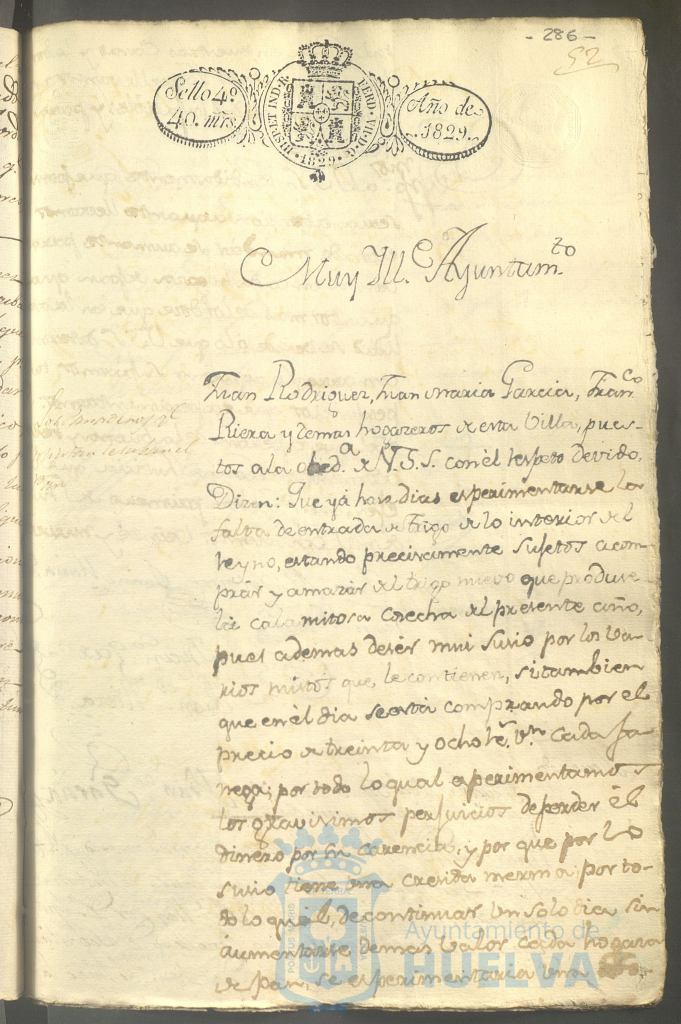 - 286 -
52
Sello 4º
40. mrs
HISP. ET IND. R. FERD. VII. D. G. 1829.
Año de
1829.
Muy Ill.e Ayuntam.to
Juan Rodriguez, Juan Maria Garcia, Fran.co
Riera y demas hogazeros de esta Villa, pues-
tos a la obed.a de V.S.S. con el respeto devido,
Dizen: Que yá haze dias esperimentarse la
falta de entrada de trigo de lo interior del
reyno, estando precisamente sujetos a com-
prar y amazar del trigo nuevo que produse
la calamitosa cosecha del presente año,
pues ademas desér mui susio por los va-
rios mistos que le contienen, si tambien
que en él dia se está comprando por el
precio de treinta y ocho r.s v.n cada fa-
nega; por todo lo qual esperimentamos
los gravisimos perjuicios deperder él
dinero por su carencia, y por que por lo
susio tiene una cresida merma: por to-
do lo qual, de continuar un solo dia sin
aumentarse demas valor cada hogaza
de pan, se esperimentaria una
Ayuntamiento de
HUELVA